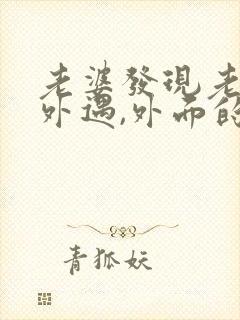 老婆發現老
外遇,外面的
青狐妖